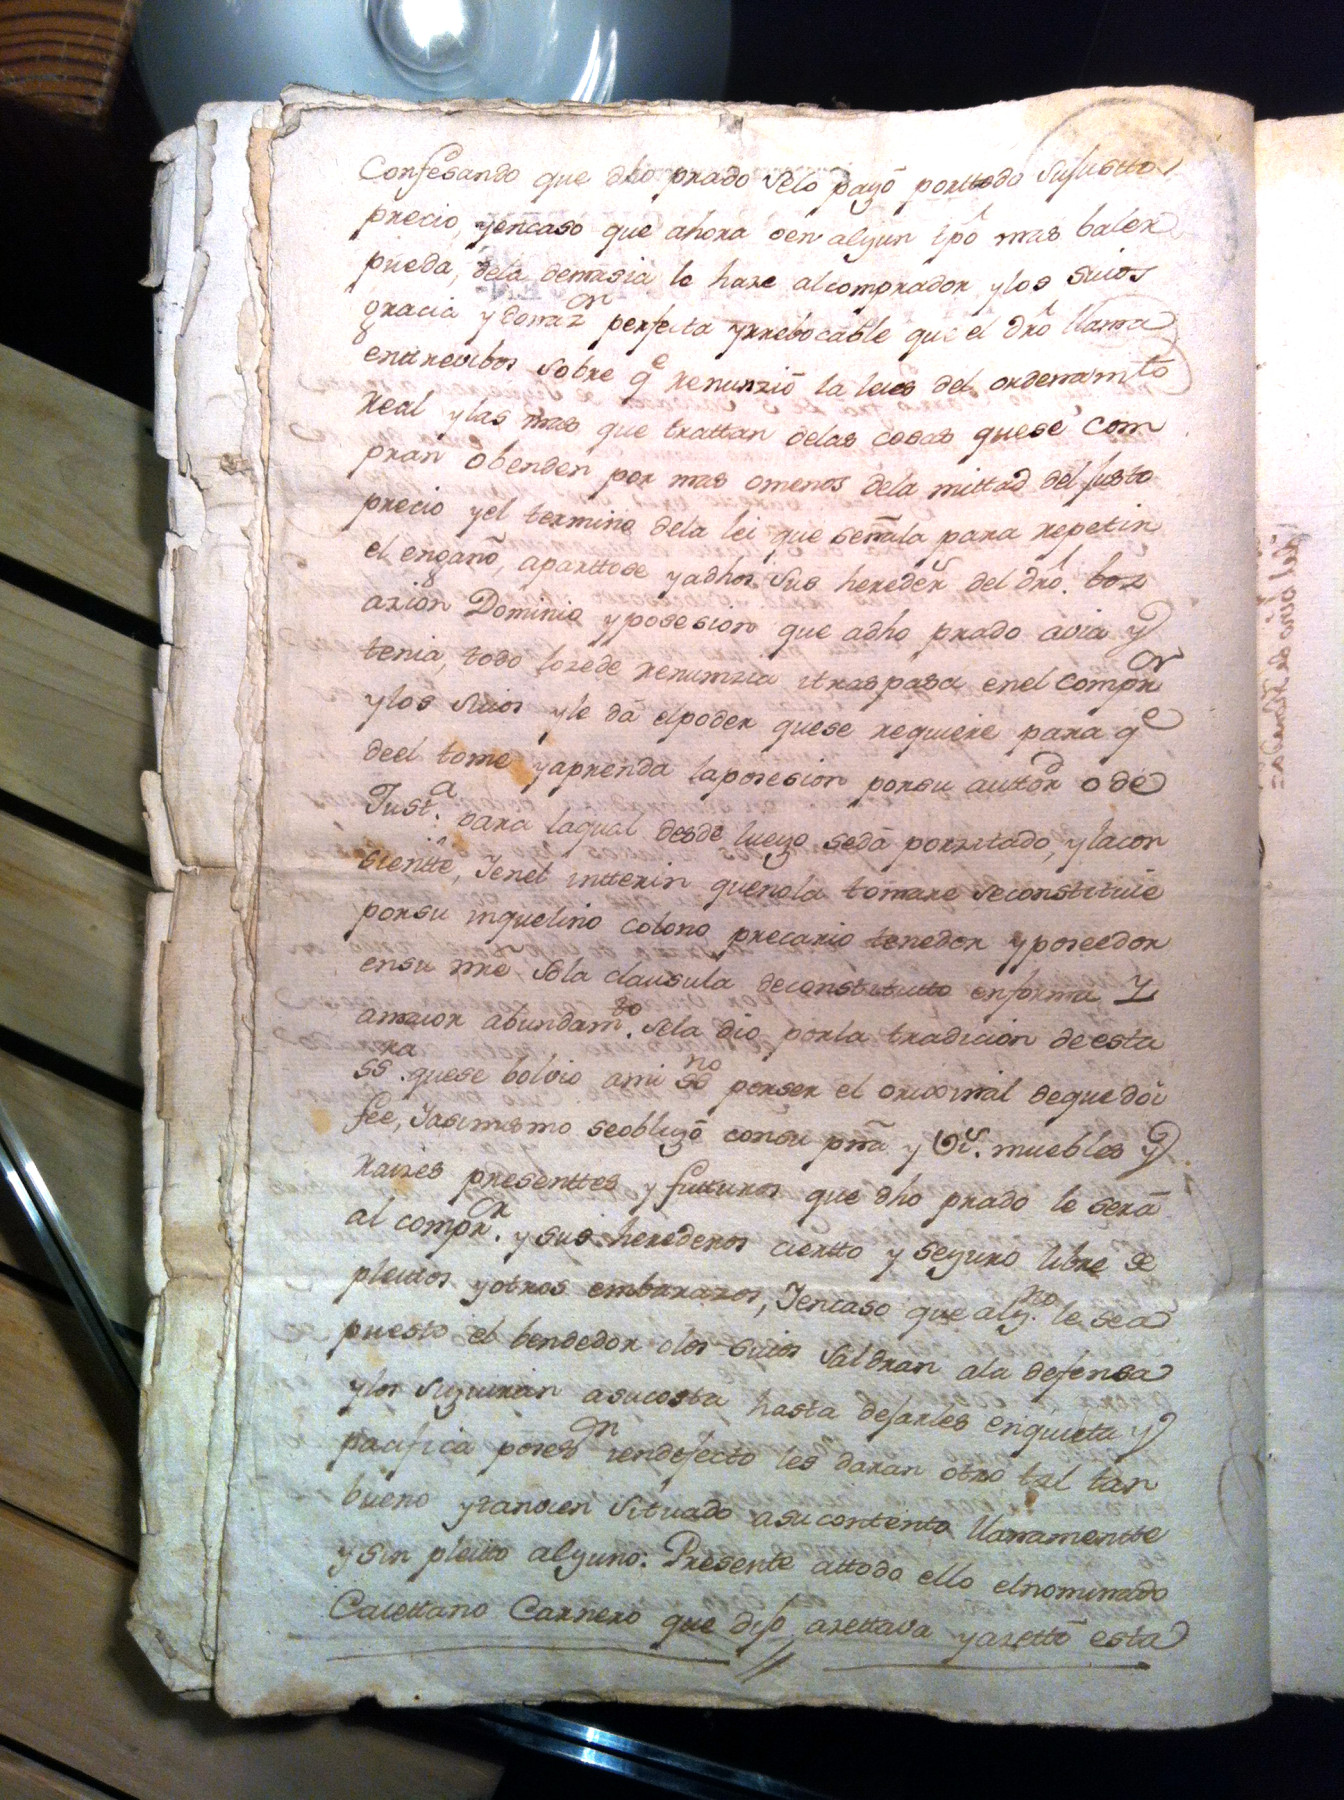 Confesando que dho prado selo pagó porttodo sujustto
precio, yencaso que ahora oen algun tpo mas baler
pueda, dela demasia le haze alcomprador ylos suios
gracia y donaz.on perfecta yrrebocable que el dro llama
entrevibos sobre q.e renunzió la leies del ordenam.to
Real ylas mas que trattan delas cosas quese com
pran obenden por mas omenos dela mittad del justo
precio yel termino dela lei que señala para repetir
el engaño, aparttose yadhos sus hereder.s del dro. boz
azion Dominio yposesion que adho prado avia y
tenia, todo lozede renunzia itraspasa enel compr.or
ylos suios yle dá elpoder quese requiere para q.e
deel tome yaprenda laposesion porsu autor.d o de
Just.a para laqual desde luego sedá porzitado, ylacon
siente, Ienel intterin quenola tomare seconstituie
porsu inquelino colono precario tenedor yposeedor
ensu nre sola clausula deconstitutto enforma Y
amaior abundam.to sela dio porla tradicion deesta
ss.ra quese bolvio ami ss.no porser el orixinal dequedoi
fee, Iasimismo seobligó consu pna y vs. muebles y
raizes presenttes y futturos que dho prado le será
al compr.or y sus herederos ciertto y seguro libre de
pleitos yotros embarazos, Iencaso que alg.no le sea
puesto el bendedor olos suios saldran ala defensa
ylos siguiran asucosta hasta dejarles enquieta y
pacifica poses.on iendefecto les daran otro tal tan
bueno ytanvien situado asucontento llanamentte
ysin pleito alguno: Presente attodo ello elnominado
Caiettano Carnero que dijo azettava yazettó esta